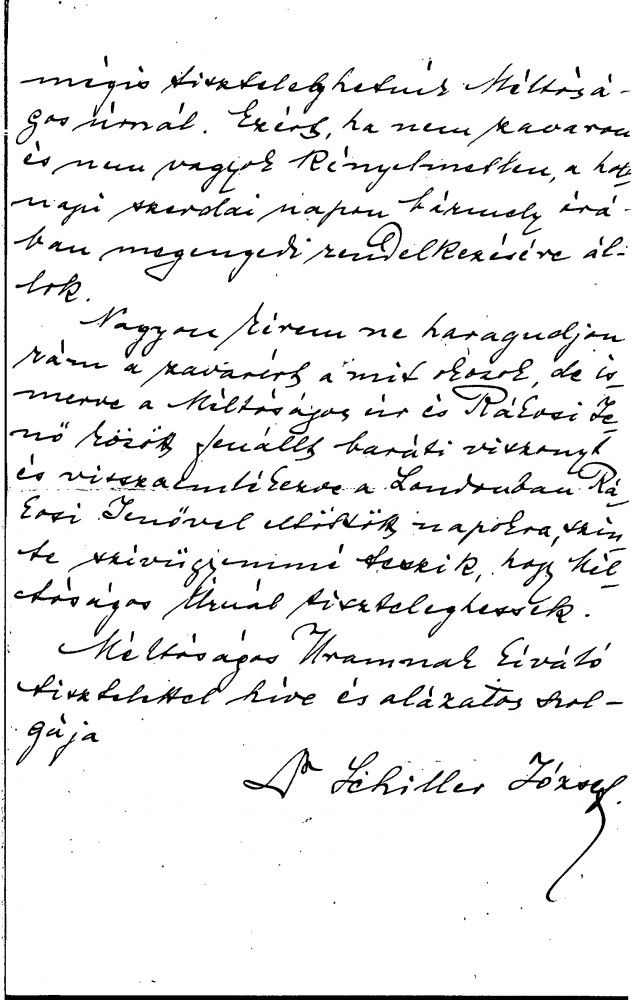 mégis tiszteleghetnék Méltósá-
gos úrnál. Ezért, ha nem zavarom
és nem vagyok kényelmetlen, a hol-
napi szerdai napon bármely órá-
ban megengedi rendelkezésére ál-
lok.
Nagyon kérem ne haragudjon
rám a zavarért a mit okozok, de is-
merve a Méltóságos úr és Rákosi Je-
nő között fenállt baráti viszonyt
és visszaemlékezve a Londonban Rá-
kosi Jenővel eltöltött napokra, szin-
te szívügyemmé teszik, hogy Mél-
tóságos Úrnál tiszteleghessek.
Méltóságos Uramnak kiváló
tisztelettel híve és alázatos szol-
gája
Dr Schiller József.